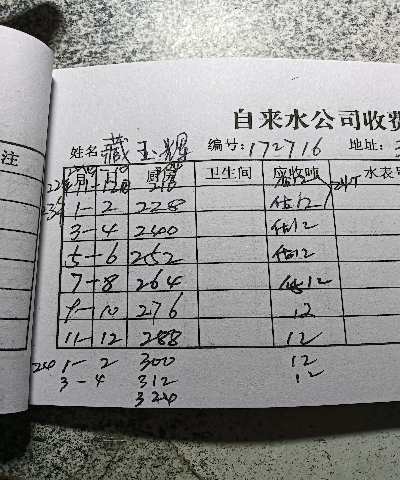 自来水公司收费
注
姓名 藏玉辉 编号: 172716 地址:
厨房 卫生间 应收吨 水表号
11-12 216 12
1-2 228 估12
3-4 240 估12
5-6 252 估12
7-8 264 估12
9-10 276 12
11-12 288 12
24 1-2 300 12
3-4 312 12
324